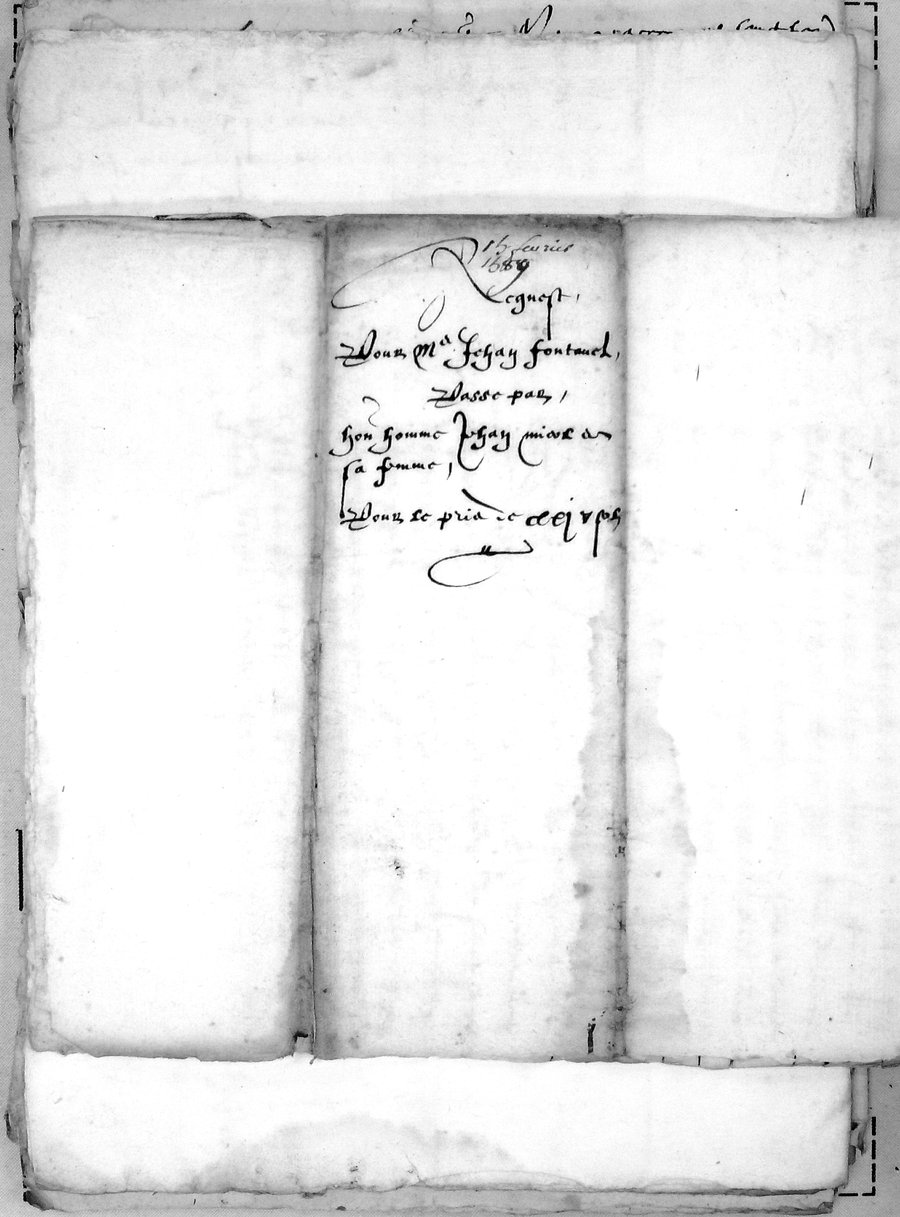 febvrier
1589
Acquest,
Pour Me Jehan fontanel,
Passe par,
hon homme Jehan micol &
sa femme,
Pour le pris de